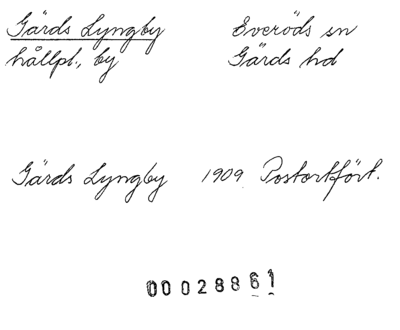 Gärds Lyngby Everöds sn
hållpl., by Gärds hd
Gärds Lyngby 1909 Postortfört.
00028861